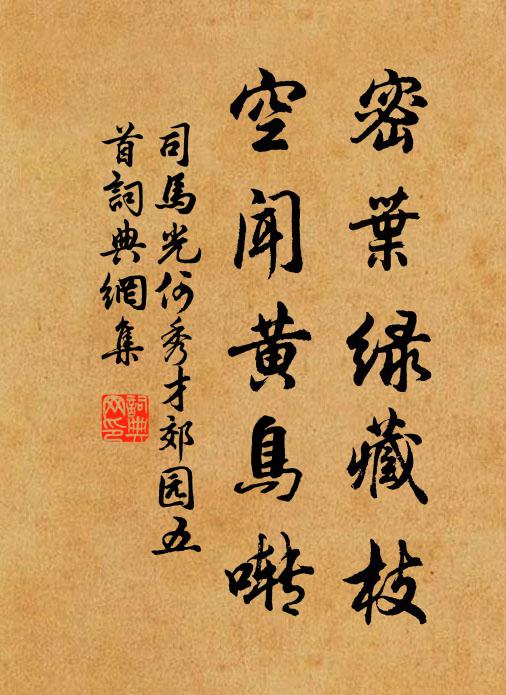 密葉緑藏枝
空聞黄鳥囀
司馬光何秀才郊园五
首詞典網集
詞典
网印